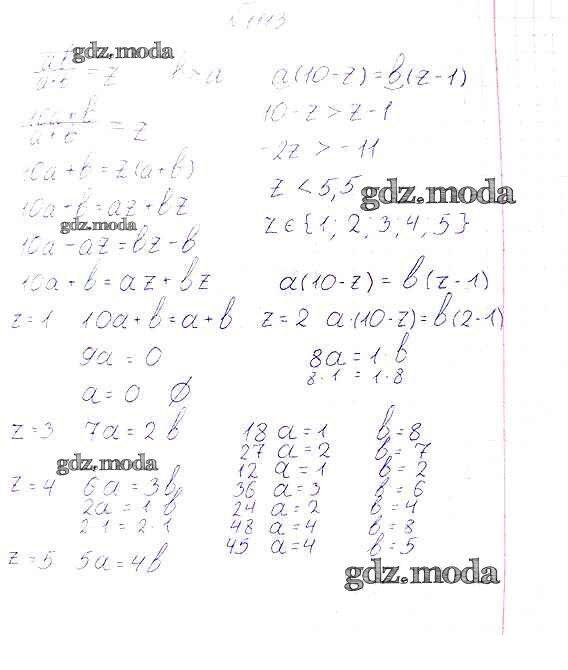 №1113
gdz.moda
ab/(a+b) = z b > a
(10a+b)/(a+b) = z
10a + b = z(a+b)
10a + b = az + bz
gdz.moda
10a - az = bz - b
10a + b = az + bz
a(10-z) = b(z-1)
10 - z > z - 1
-2z > -11
z < 5,5
gdz.moda
z ∈ {1; 2; 3; 4; 5}
a(10-z) = b(z-1)
z = 1 10a + b = a + b
9a = 0
a = 0 ∅
z = 2 a·(10-z) = b(2-1)
8a = 1·b
8·1 = 1·8
z = 3 7a = 2b
gdz.moda
z = 4 6a = 3b
2a = 1 b
2·1 = 2·1
z = 5 5a = 4b
18 a = 1 b = 8
27 a = 2 b = 7
12 a = 1 b = 2
36 a = 3 b = 6
24 a = 2 b = 4
48 a = 4 b = 8
45 a = 4 b = 5
gdz.moda